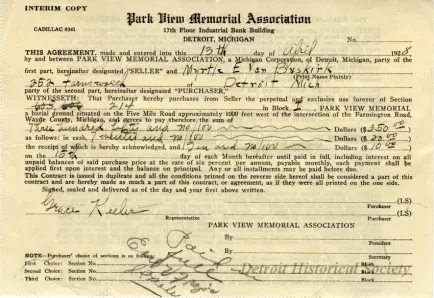 INTERIM COPY
Park View Memorial Association
CADILLAC 9341
17th Floor Industrial Bank Building
DETROIT, MICHIGAN
No.
THIS AGREEMENT, made and entered into this 13th day of April 1928
by and between PARK VIEW MEMORIAL ASSOCIATION, a Michigan Corporation, of Detroit, Michigan, party of the
first part, hereinafter designated "SELLER" and Myrtle E Van Buskirk
(Print Name Plainly)
252 Detroit Mich
party of the second part, hereinafter designated "PURCHASER,"
WITNESSETH: That Purchaser hereby purchases from Seller the perpetual and exclusive use forever of Section
214 in Block I, PARK VIEW MEMORIAL
a burial ground situated on the Five Mile Road approximately 1000 feet west of the intersection of the Farmington Road,
Wayne County, Michigan, and agrees to pay therefor, the sum of
Three hundred fifty and no/100 Dollars ($350.00)
as follows: in cash, Twenty and no/100 Dollars ($20.00)
the receipt of which is hereby acknowledged, and Ten and no/100 Dollars ($10.00)
on the 15th day of each Month hereafter until paid in full, including interest on all
unpaid balances of said purchase price at the rate of six percent per annum, payable monthly, each payment shall be
applied first upon interest and the balance on principal. Any or all installments may be paid before due.
This Contract is issued in duplicate and all the conditions printed on the reverse side hereof shall be considered a part of this
contract and are hereby made as much a part of this contract, or agreement, as if they were all printed on the one side.
Signed, sealed and delivered as of the day and year first above written.
(LS)
Purchaser
Grace Keeler
(LS)
Representative
Purchaser
PARK VIEW MEMORIAL ASSOCIATION
By
President
Paid
full
By
Secretary
NOTE—Purchaser' choice of sections is as follows:
First Choice: Section No. Block
Second Choice: Section No. Block
Third Choice: Section No. Block
Detroit Historical Society